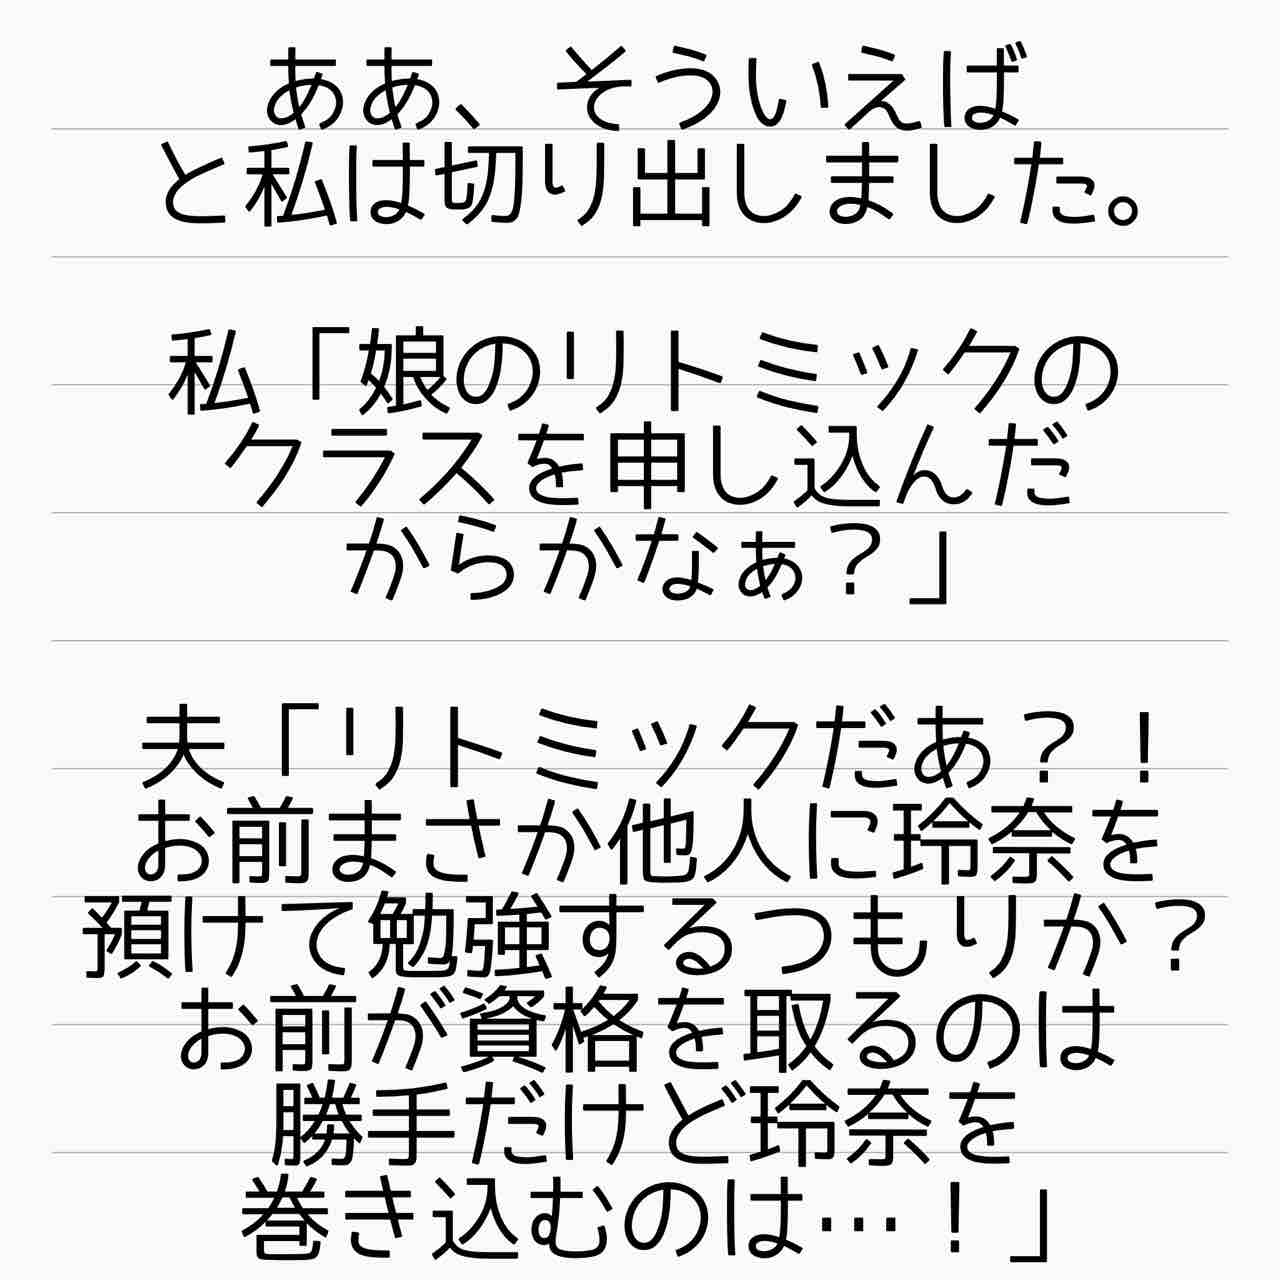 ああ、そういえば
と私は切り出しました。
私「娘のリトミックの
クラスを申し込んだ
からかなぁ？」
夫「リトミックだあ？！
お前まさか他人に玲奈を
預けて勉強するつもりか？
お前が資格を取るのは
勝手だけど玲奈を
巻き込むのは…！」